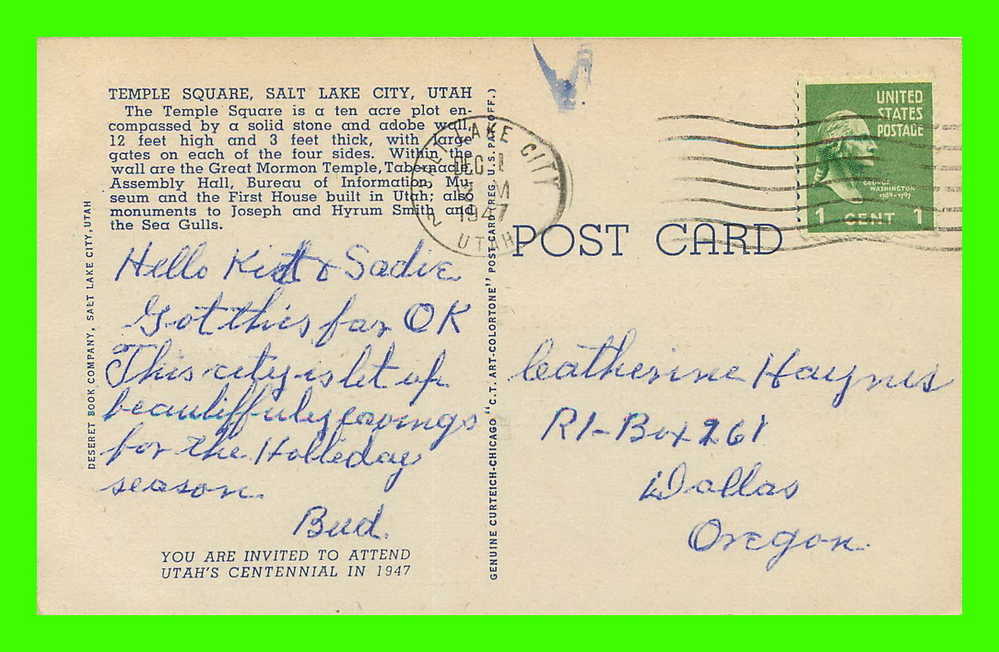 TEMPLE SQUARE, SALT LAKE CITY, UTAH
The Temple Square is a ten acre plot en-
compassed by a solid stone and adobe wall,
12 feet high and 3 feet thick, with large
gates on each of the four sides. Within the
wall are the Great Mormon Temple, Tabernacle,
Assembly Hall, Bureau of Information, Mu-
seum and the First House built in Utah; also
monuments to Joseph and Hyrum Smith and
the Sea Gulls.
Hello Kid & Sadie
Got this far OK
This city is let up
beautiffuly evnings
for the Holleday
season.
Bud.
YOU ARE INVITED TO ATTEND
UTAH'S CENTENNIAL IN 1947
DESERET BOOK COMPANY, SALT LAKE CITY, UTAH
GENUINE CURTEICH-CHICAGO "C.T. ART-COLORTONE" POST CARD (REG. U.S. PAT. OFF.)
SALT LAKE CITY
DEC
M
1947
UTAH
UNITED
STATES
POSTAGE
GEORGE
WASHINGTON
1789-1797
1 CENT 1
POST CARD
Catherine Haynes
R1-Box 261
Dallas
Oregon.